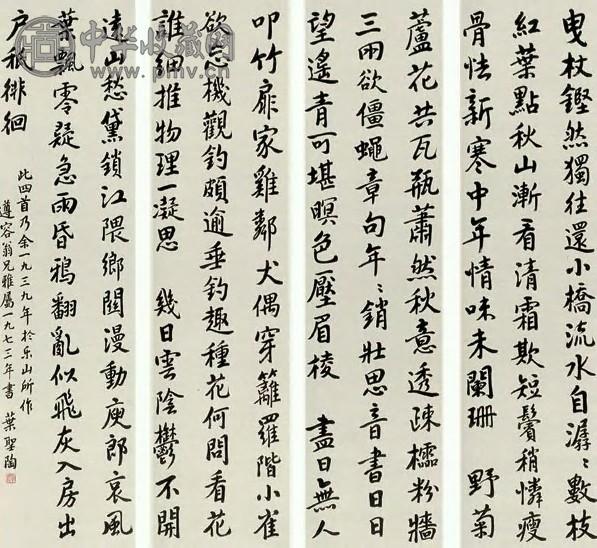 曳杖鏗然獨往還小橋流水自潺〻數枝
紅葉點秋山漸看清霜欺短鬢稍憐瘦
骨怯新寒中年情味未闌珊 野菊
蘆花共瓦瓶蕭然秋意透疎櫺粉牆
三兩欲僵蠅章句年〻銷壯思音書日日
望遙青可堪暝色壓眉棱 盡日無人
叩竹扉家雞鄰犬偶穿籬羅階小雀
欲忘機觀釣頗逾垂釣趣種花何問看花
誰細推物理一凝思 幾日雲陰鬱不開
遠山愁黛鎖江隈鄉關漫動庾郎哀風
葉飄零疑急雨昏鴉翻亂似飛灰入房出
户祇徘徊
此四首乃余一九三九年於乐山所作
遵容翁兄雅屬一九七三年書 葉聖陶
中华收藏网
www.pmv.cn